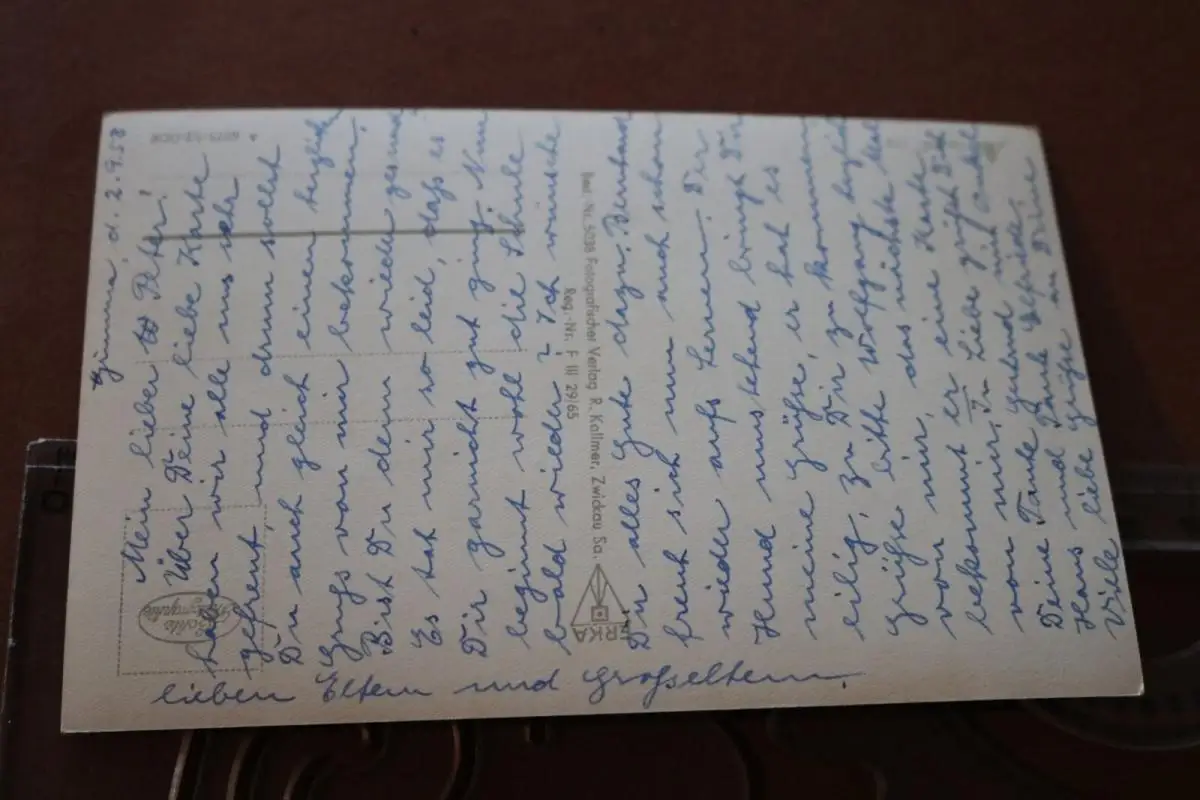 Grimma, d. 2.9.58
Mein lieber Peter!
Über Deine liebe Karte
haben wir alle uns sehr
gefreut, und drum sollst
Du auch gleich einen herzlich
Gruß von mir bekommen.
Bist Du denn wieder gesund
Es tat mir so leid, daß es
Dir garnicht gut ging. Nun
beginnt wohl die Schule
bald wieder? Ich wünsche
Dir alles Gute dazu. Bernhard
freut sich nun auch schon
wieder aufs Lernen. Der
Hund umstehend bringt Dir
meine Grüße, er hat es
eilig, zu Dir zu kommen
Grüße bitte Wolfgang herzlich
von mir, das nächste Mal
bekommt er eine Karte
von mir. In Liebe grüßt Dich
Deine Tante Gertrud mit Onkel
Hans und Tante Elfriede.
Viele liebe Grüße an Deine
lieben Eltern und Großeltern.
Best.-Nr. 4038 Fotografischer Verlag R. Kallmer, Zwickau Sa.
Reg.-Nr. F III 29/65
ERKA
Echte
Photographie